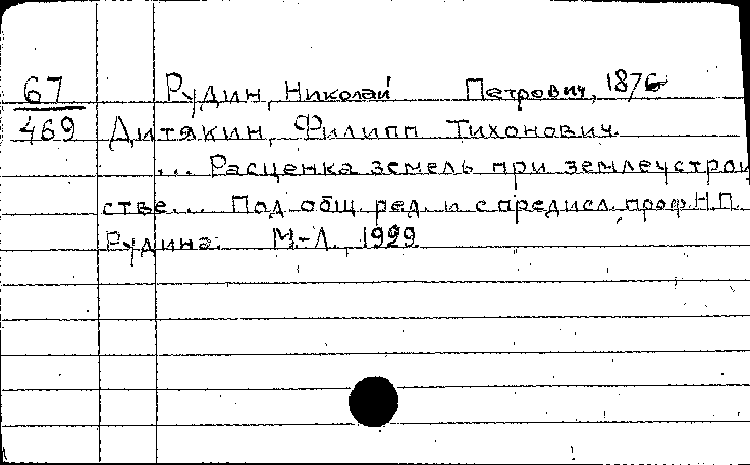 67 Рудин, Николай Петрович, 1876
469 Дитякин, Филипп Тихонович.
... Расценка земель при землеустрои
стве... Под общ. ред. и с предисл. проф. Н.П.
Рудина. М.-Л., 1929